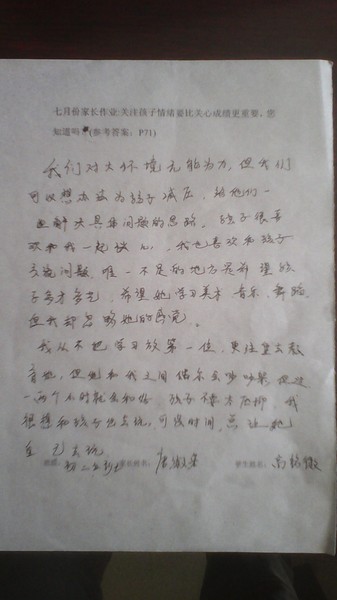 七月份家长作业:关注孩子情绪要比关心成绩更重要，您
知道吗?(参考答案：P71)
我们对大环境无能为力，但我们
可以想办法为孩子减压，给他们一
些解决具体问题的思路。孩子很喜
欢和我一起谈心，我也喜欢和孩子
交流问题，唯一不足的地方是希望孩
子多才多艺，希望她学习美术、音乐、舞蹈，
但我却忽略她的感觉。
我从不把学习放第一位，更注重去教
育她，但她和我之间偶尔会吵吵架，但过
一两个小时就会和好，孩子不压抑，我
很想和孩子出去玩，可没时间，总让她
自己去玩
班级： 家长姓名： 学生姓名：